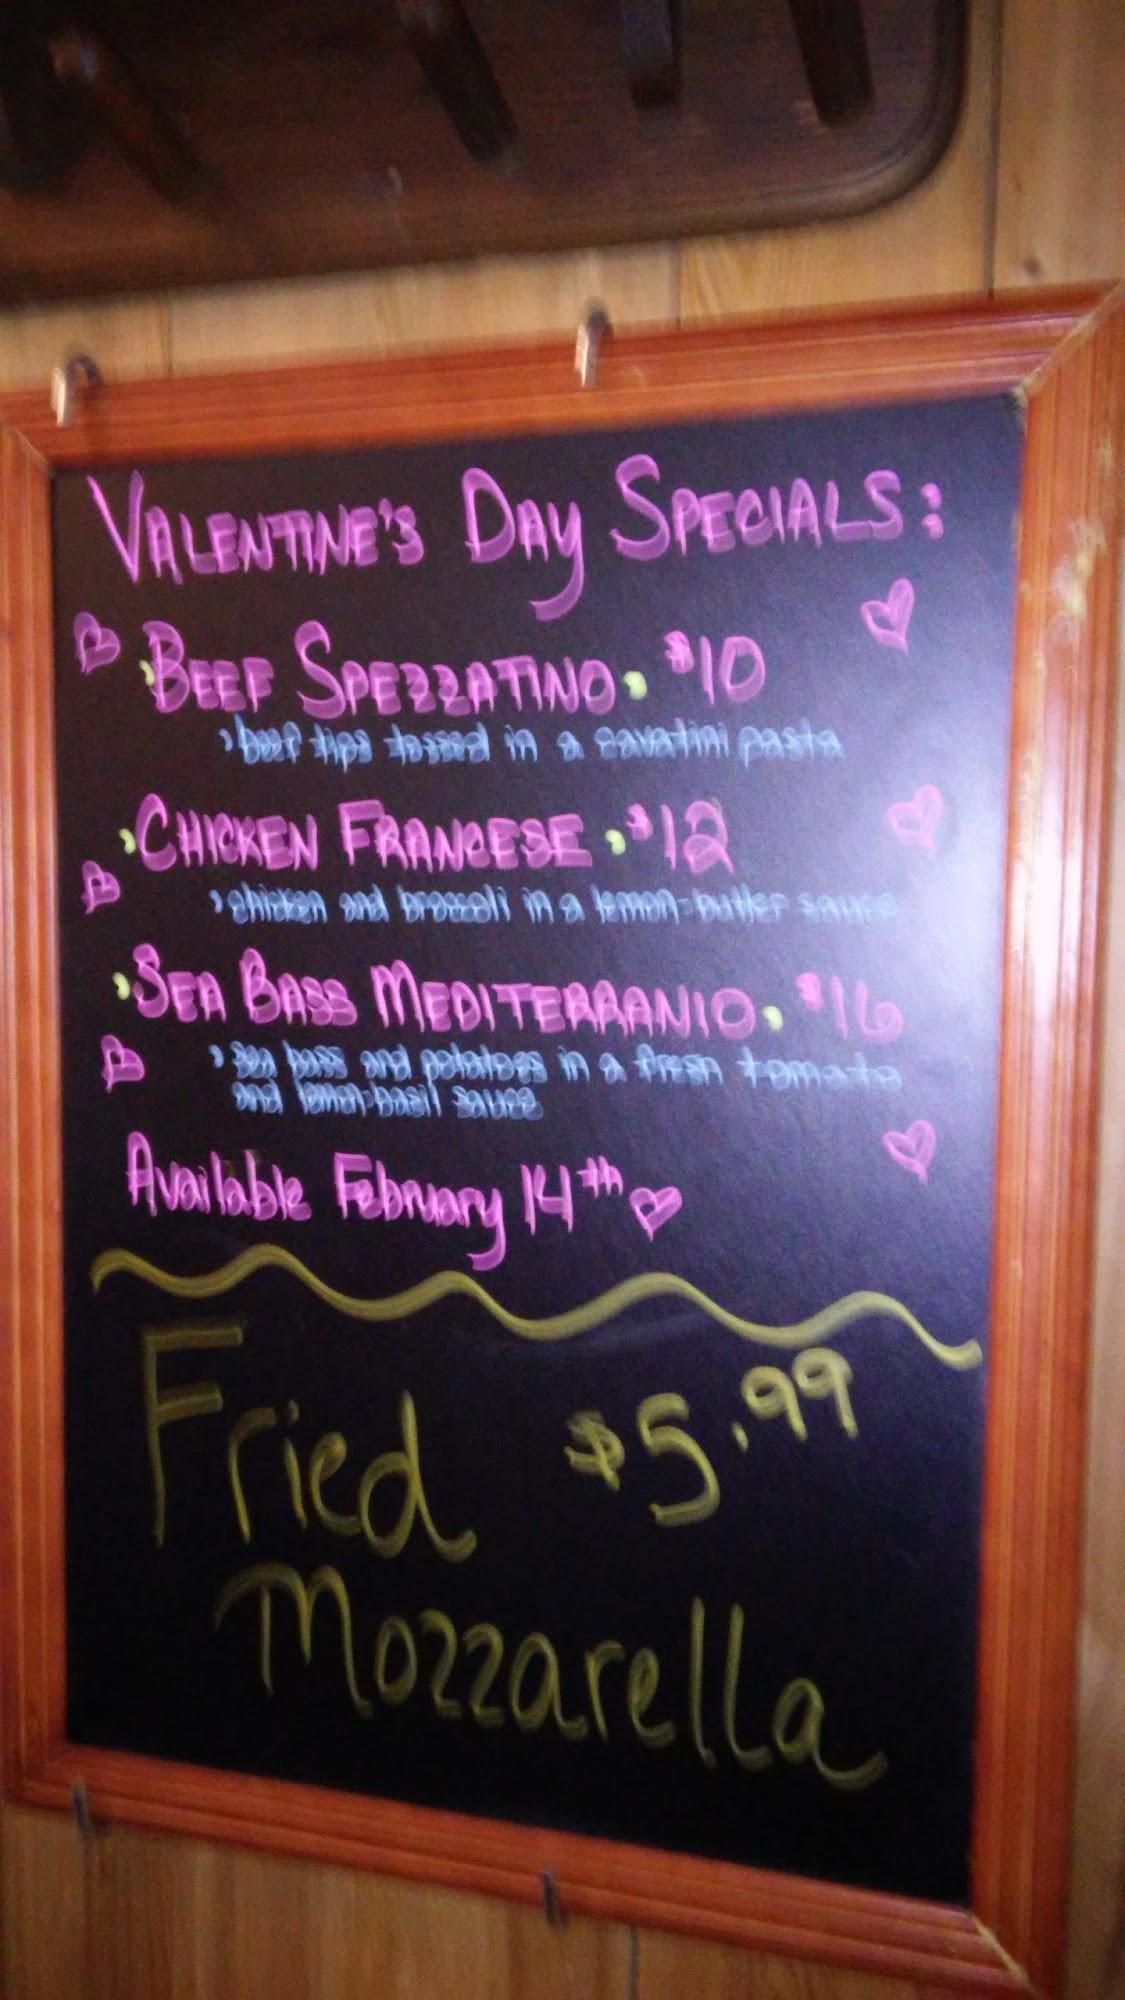 VALENTINE'S DAY SPECIALS:
BEEF SPEZZATINO. $10
beef tips tossed in a cavatini pasta
CHICKEN FRANCESE. $12
chicken and broccoli in a lemon-butter sauce
SEA BASS MEDITERRANIO. $16
sea bass and potatoes in a fresh tomato
and lemon-basil sauce
Available February 14th
Fried $5.99
Mozzarella